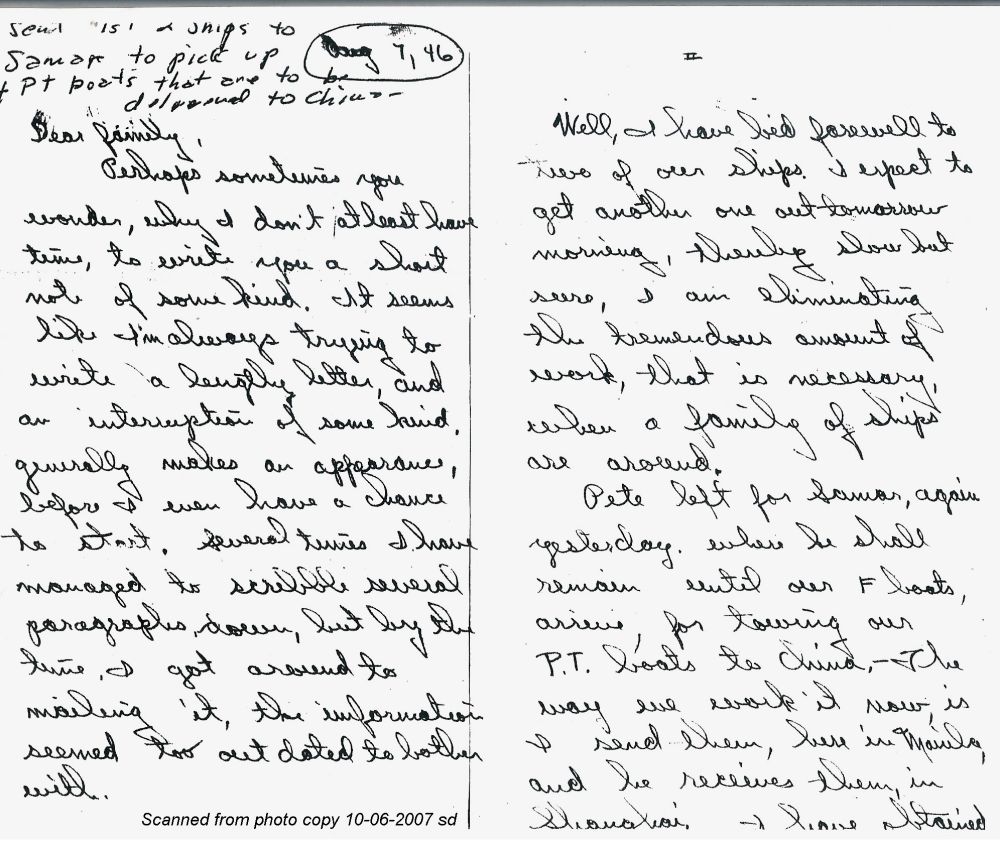 Send 1st 2 ships to
Samar to pick up
PT boats that are to be
delivered to China -
Aug 7, 46
Dear family,
Perhaps sometimes you
wonder, why I don't atleast have
time, to write you a short
note of some kind. It seems
like I'm always trying to
write a lengthy letter, and
an interruption of some kind,
generally makes an appearance,
before I even have a chance
to start. Several times I have
managed to scribble several
paragraphs, down, but by the
time, I got around to
mailing it, the information
seemed too out dated to bother
with.
Scanned from photo copy 10-06-2007 sd
II
Well, I have bid farewell to
two of our ships. I expect to
get another one out tomorrow
morning, thereby slow but
sure, I am eliminating
the tremendous amount of
work, that is necessary,
when a family of ships
are around.
Pete left for Samar, again
yesterday. where he shall
remain until our F boats,
arrive, for towing our
P.T. boats to China, - The
way we work it now, is
I send them, here in Manila,
and he receives them, in
Shanghai. - I have obtained